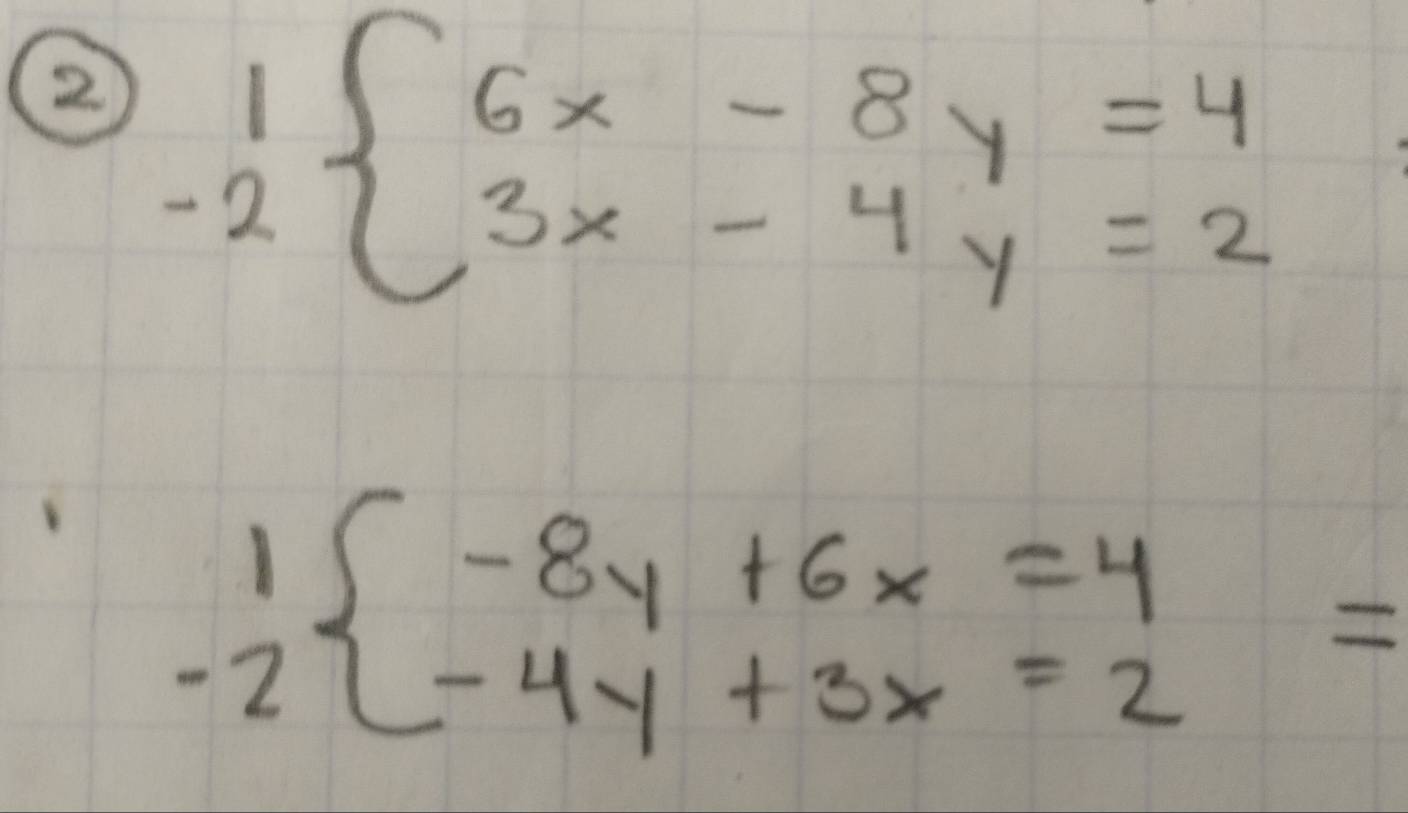 ② 1 { 6x - 8y = 4
-2 { 3x - 4y = 2
1 { -8y + 6x = 4 =
-2 { -4y + 3x = 2